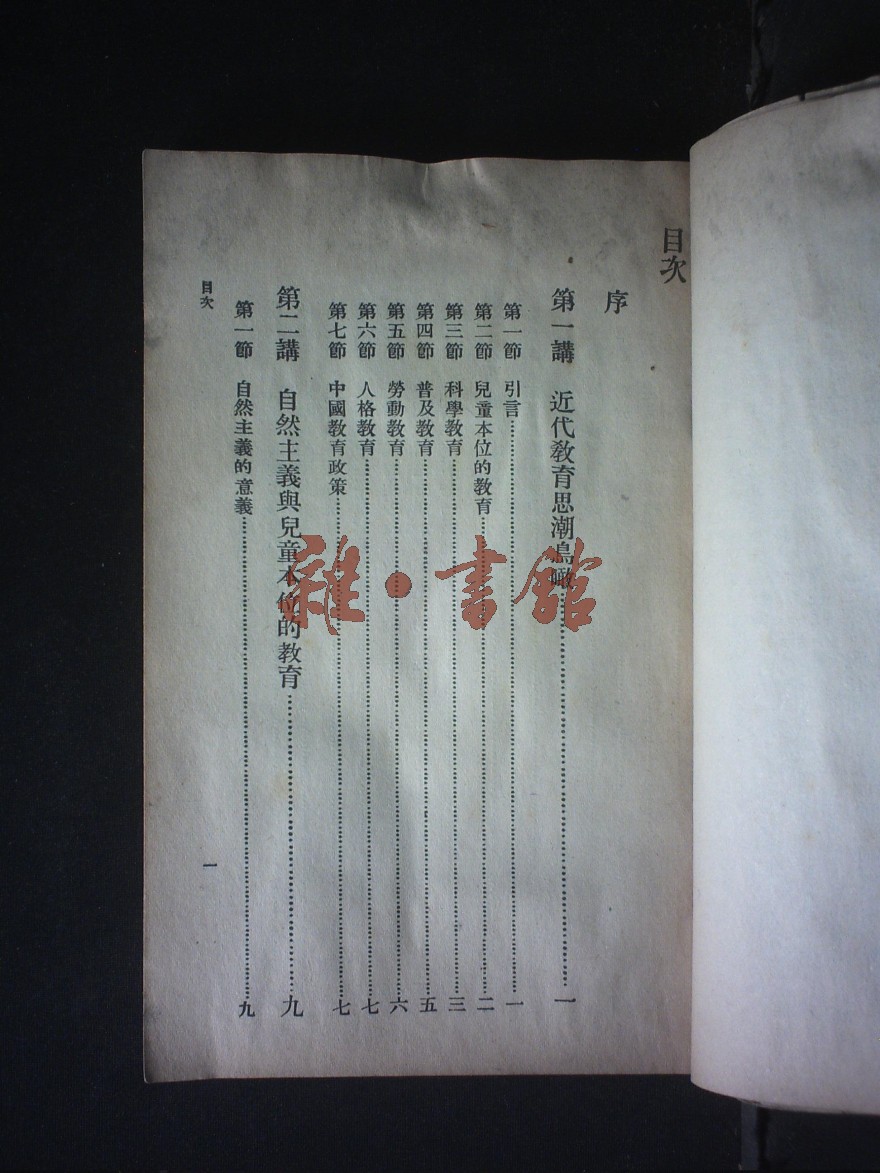 目次
序
第一講 近代教育思潮鳥瞰……一
第一節 引言……一
第二節 兒童本位的教育……二
第三節 科學教育……三
第四節 普及教育……五
第五節 勞動教育……六
第六節 人格教育……七
第七節 中國教育政策……七
第二講 自然主義與兒童本位的教育……九
第一節 自然主義的意義……九
目次
一
雜·書館